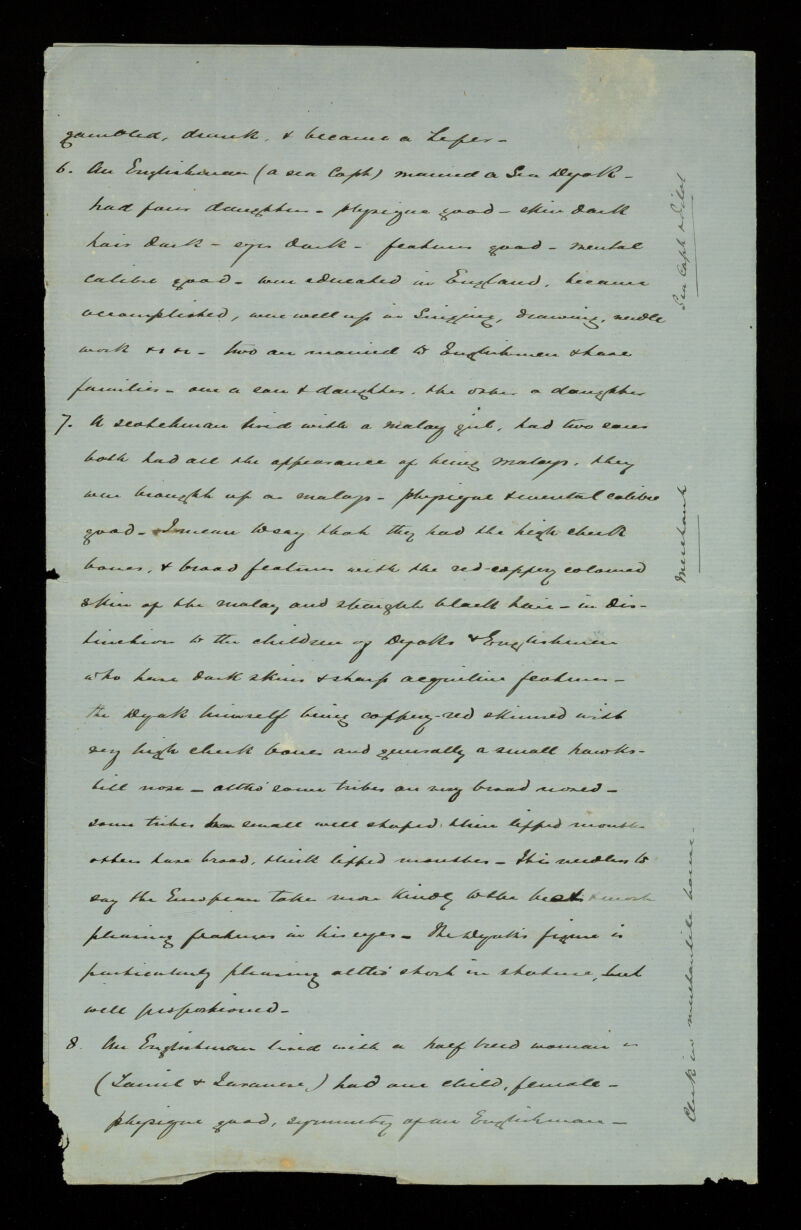 gambled, drunk, & became a Leper -
6. An Englishman (a sea Capt) married a Sea Dyak -
had four daughters - physique good - skin dark
hair dark - eyes dark - features good - mental
calibre good - were educated in England, became
accomplished, were well up in Singing, drawing, needle
work &c &c - two are married to Englishmen & have
families - one a son & daughter, the other a daughter
7. A scotchman lived with a malay girl, had two sons
both had all the appearance of being malays, they
were brought up as malays - physique & mental calibre
good - I mean to say that they had the high cheek
bones, & broad features with the red-coppery coloured
skin of the malay and straight black hair - in dis-
tinction to the children of Dyaks & Englishmen
who have dark skins & sharp acquiline features -
the Dyak himself being coppery-red skinned with
very high cheek bones and generally a small hawks-
bill nose - altho' some tribes are very broad nosed -
some tribes have small well shaped thin lipped mouths
others have broad, thick lipped mouths - It is needless to
say the European takes more kindly to the best & most
pleasing features in his eyes - The Dyak's figure is
particularly pleasing altho' short in stature, but
well proportioned -
8. An Englishman lived with a half bred woman
(Tamil & Javanese) had one child, female -
physique good, symmetry of an Englishman -
Sea Capt & Pilot
Merchant
Clerk in merchantile house -